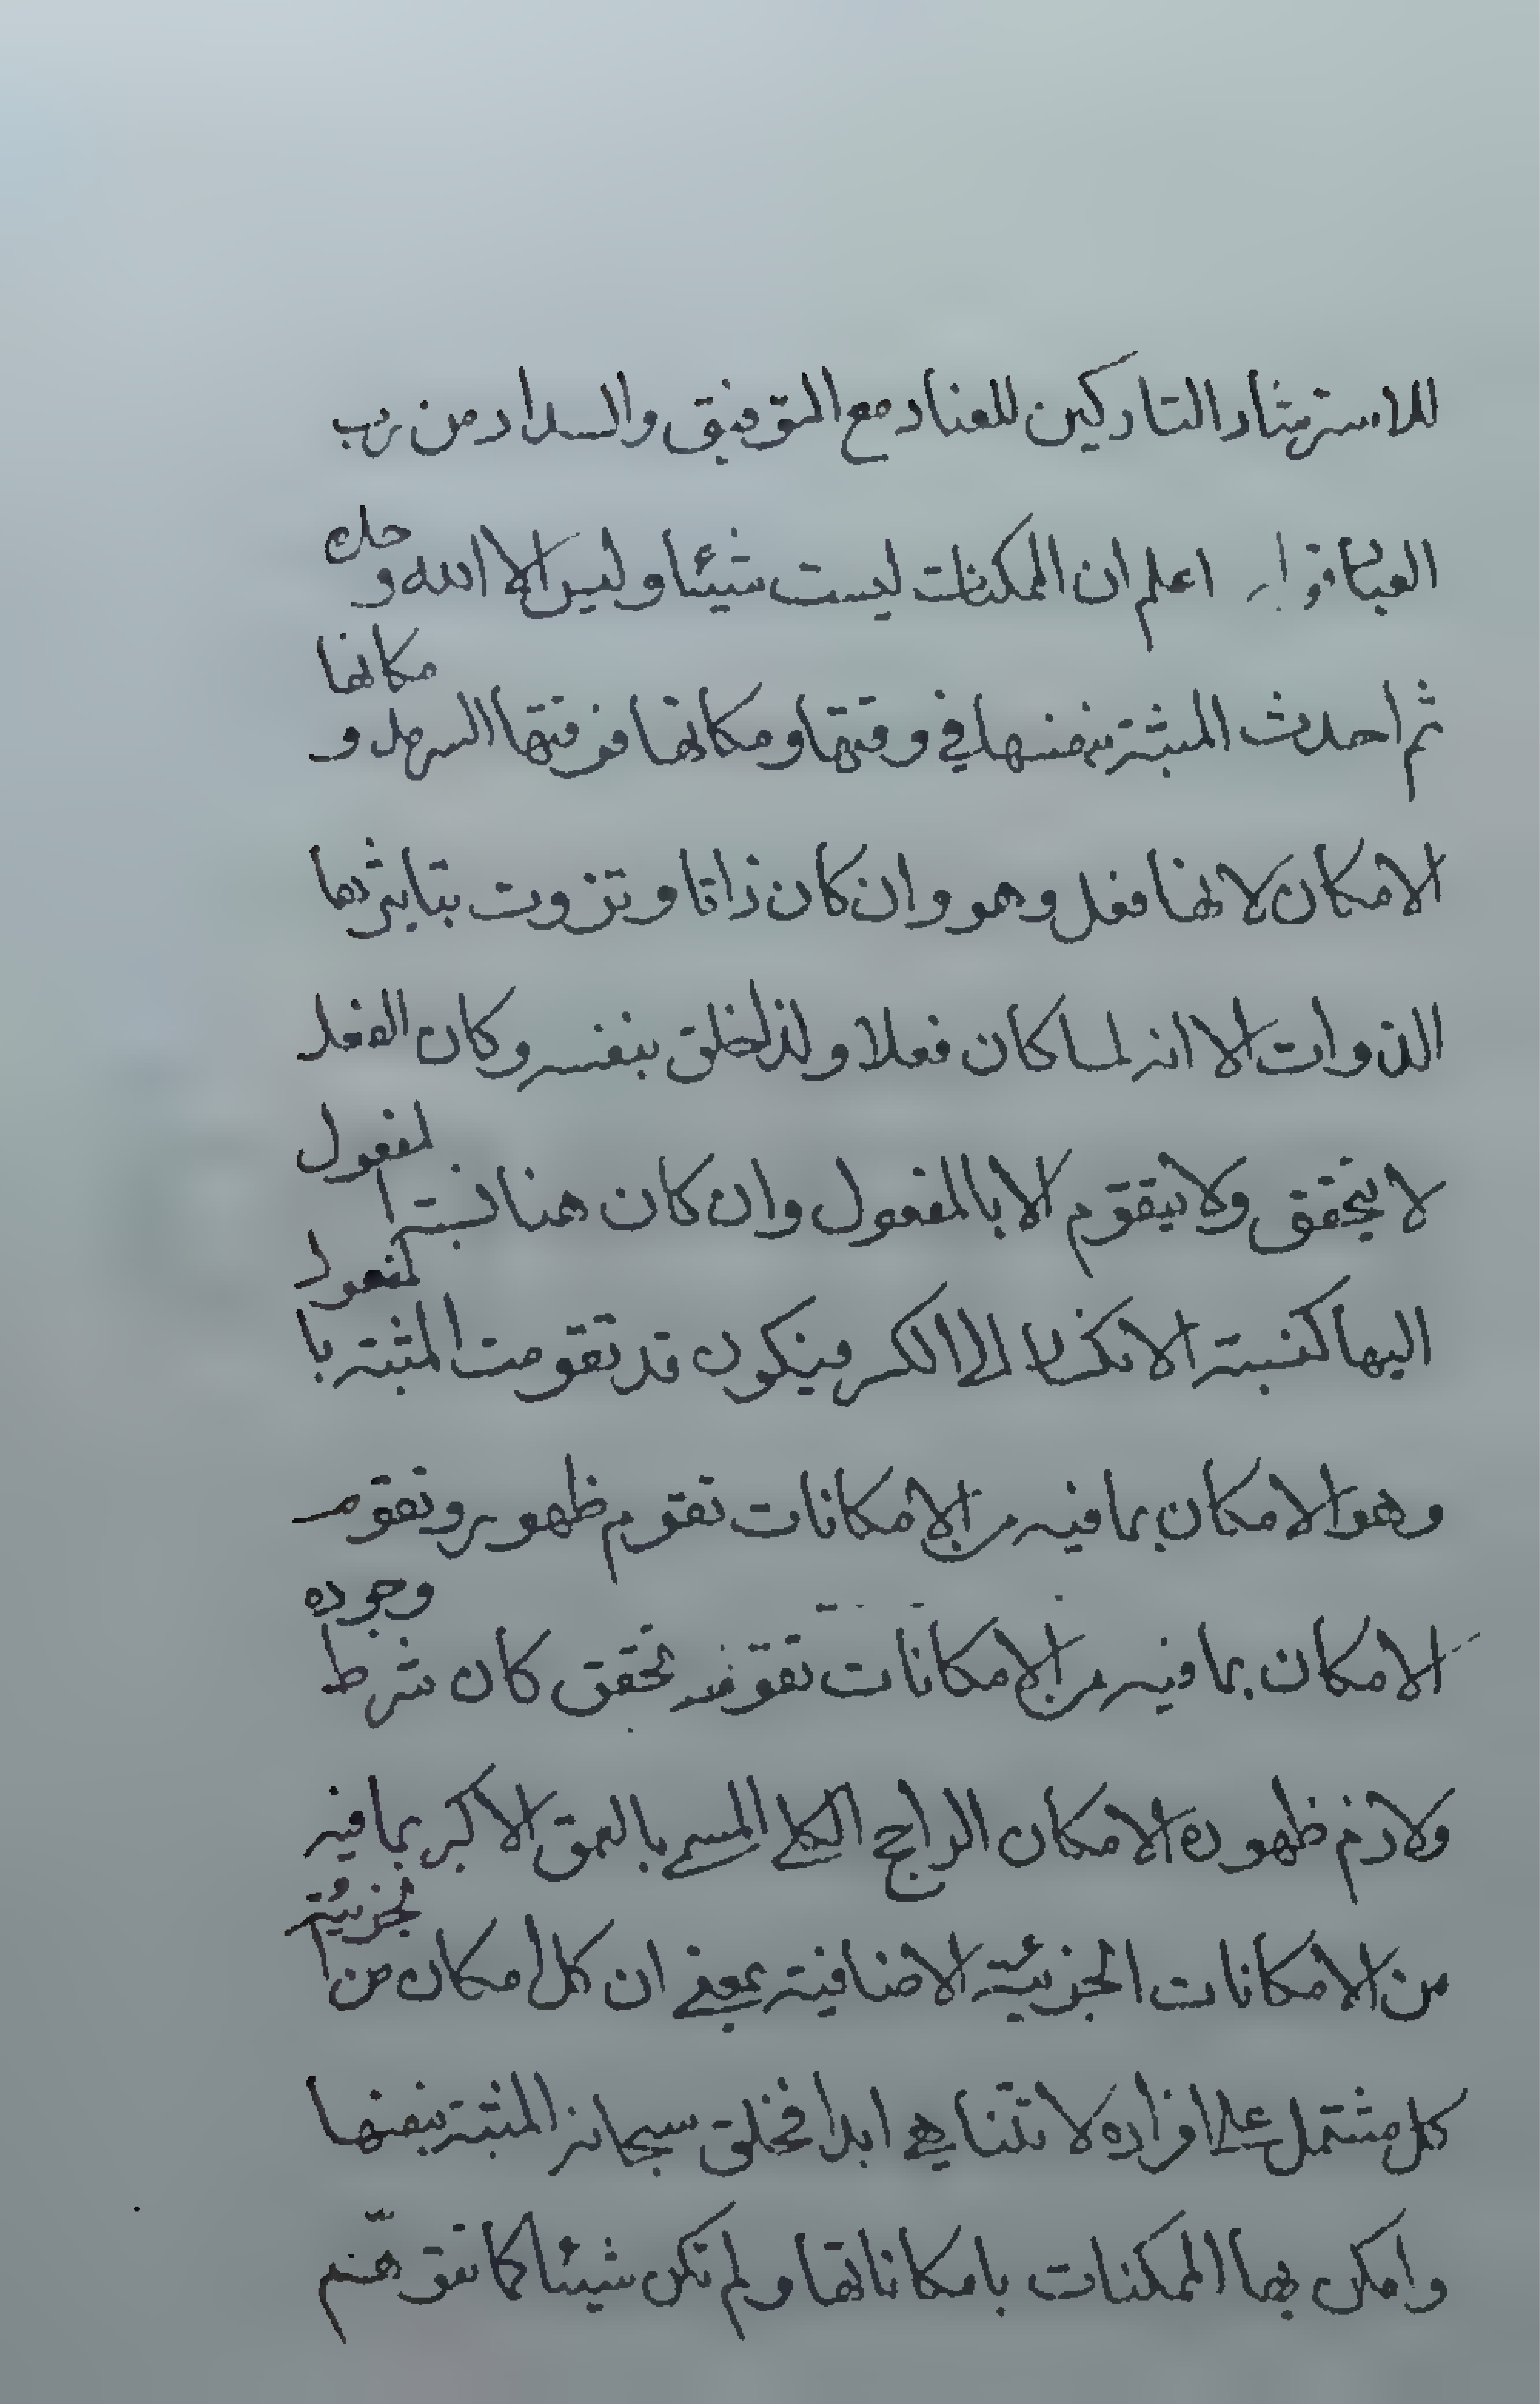 للاسترشاد التاركين للعناد مع التوفيق والسداد من رب
العباد اعلم ان الممكنات ليست شيئا وليس الا الله وحده
ثم احدث المشية بنفسها في وقتها ومكانها فوقتها السرمد و مكانها
الامكان لانها فعل وهو وان كان ذاتا وتزوت بتاثيرها
الذوات الا انه لما كان فعلا ولذا خلق بنفسه وكان الفعل
لا يتحقق ولا يتقوم الا بالمفعول وان كان هنا نسبة المفعول
اليها كنسبة الانكسار الى الكسر فيكون قد تقومت المشية بالمفعول
وهو الامكان بما فيه من الامكانات تقوم ظهور وتقوم
الامكان بما فيه من الامكانات تقوم تحقق كان شرط وجوده
ولازم ظهوره الامكان الراجح الكلي المسمى بالعمق الاكبر بما فيه
من الامكانات الجزئية الاضافية بمعنى ان كل امكان من الجزئية
كل مشتمل على افراده لا تتناهى ابدا فخلق سبحانه المشية بنفسها
وامكن بها الممكنات بامكاناتها ولم تكن شيئا كما تقو هم